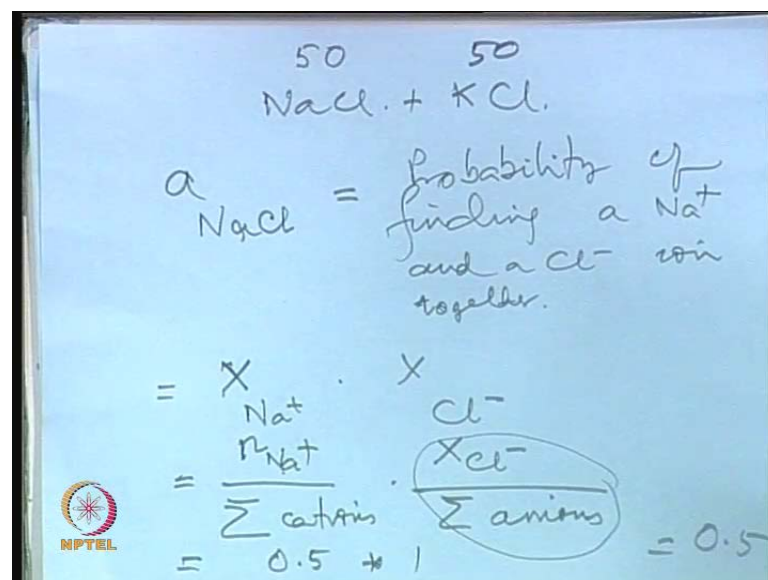 50 50
NaCl. + KCl.
a NaCl = Probability of
finding a Na+
and a Cl- ion
together.
= X Na+ . X Cl-
= nNa+ / Σ cations . XCl- / Σ anions
= 0.5 * 1 = 0.5
NPTEL